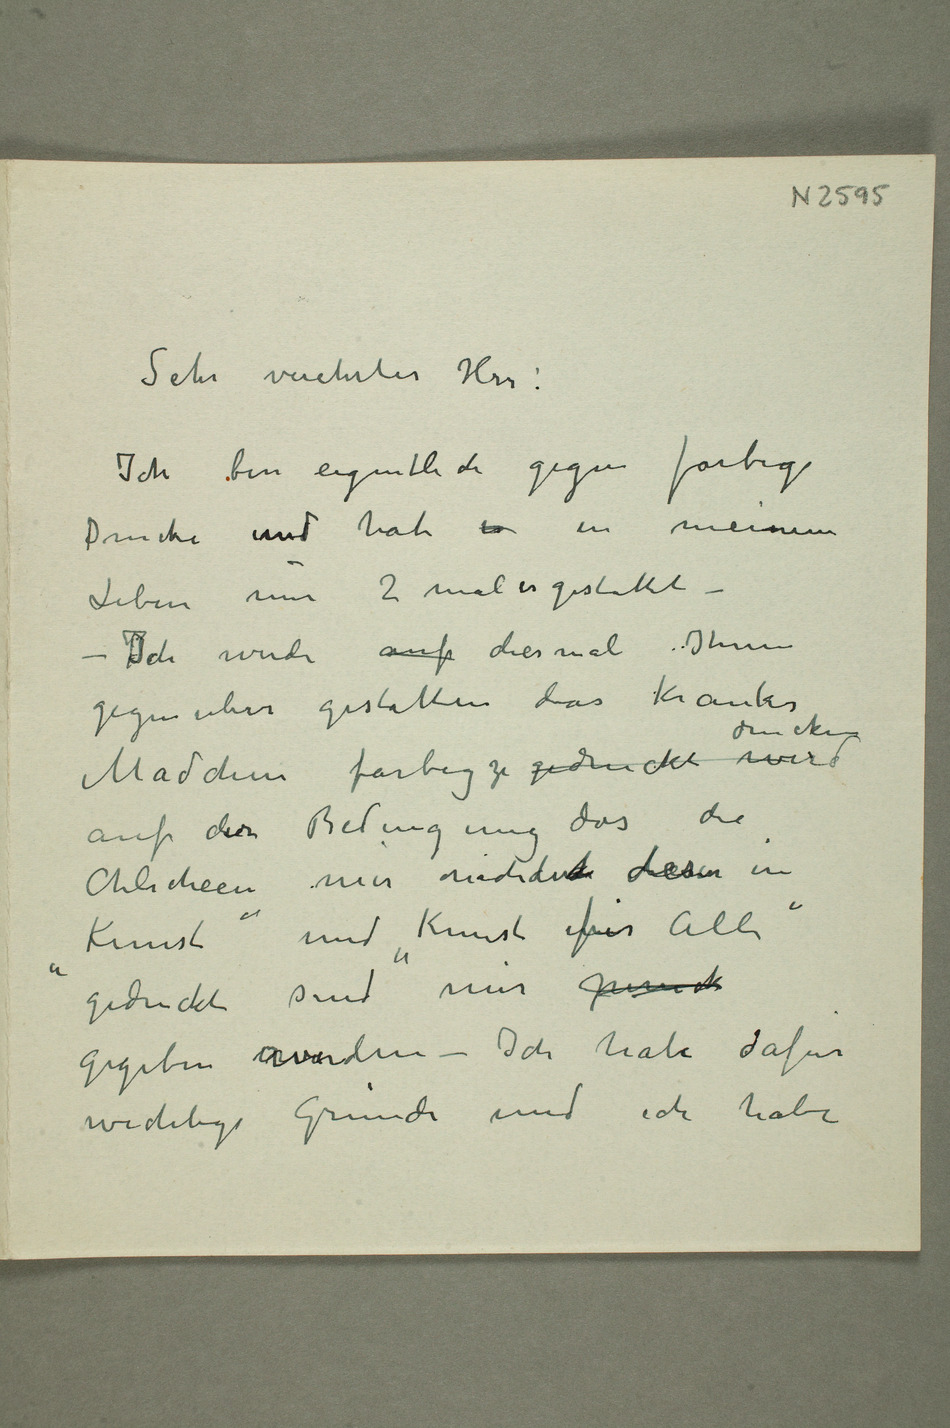 N 2595
Sehr verehrter Herr:
Ich bin eigentlich gegen farbige
Drucke und habe es in meinem
Leben nur 2 mal es gestattet –
– Ich werde auf diesmal Ihnen
gegenüber gestatten das Kranke
drucken
Mädchen farbig zu gedruckt wird
auf der Bedingung das die
Chlicheen mir nachdem diese in
Kunst“ und „Kunst für Alle“
„gedruckt sind mir zurück
gegeben werden – Ich habe dafür
wichtige Gründe und ich habe